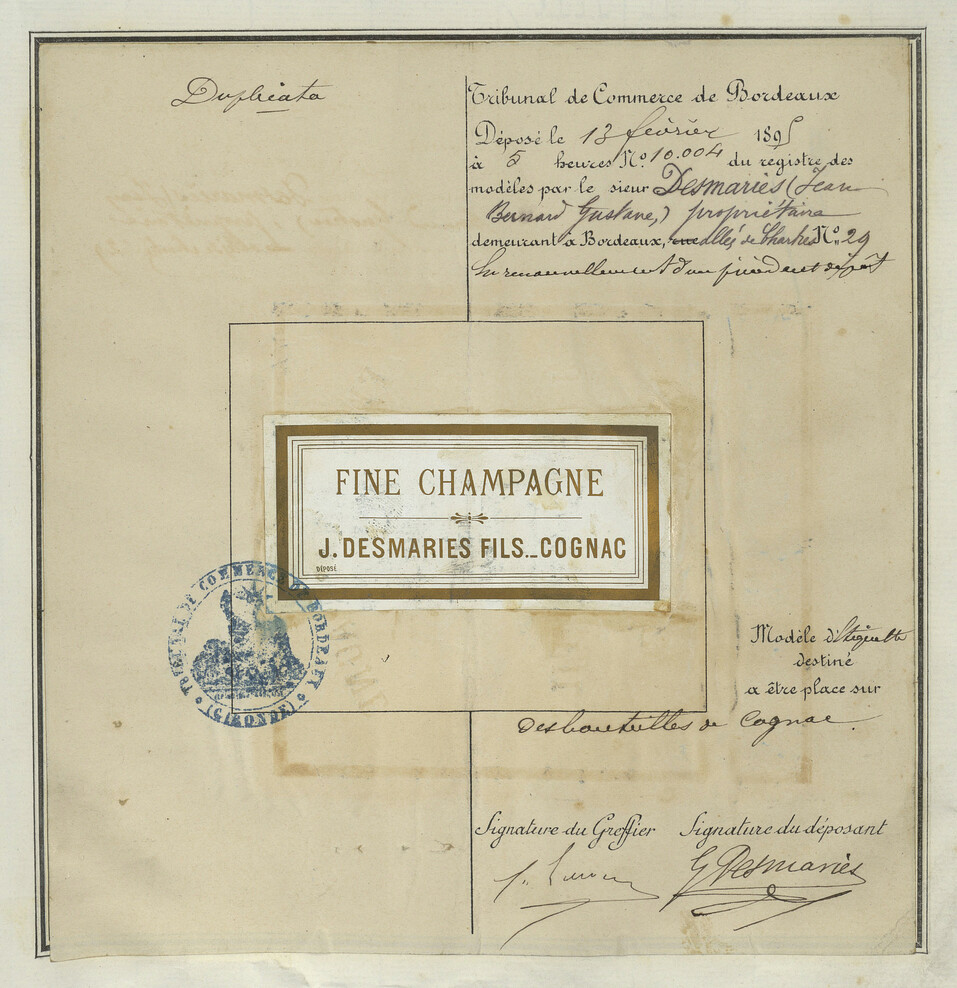 Duplicata
Tribunal de Commerce de Bordeaux
Déposé le 13 février 1895
à 5 heures No. 10.004 du registre des
modèles par le sieur Desmariès (Jean
Bernard Gustave,) propriétaire
demeurant à Bordeaux, rue allés de Chartres No. 29
En renouvellement d'un précédent dépôt
FINE CHAMPAGNE
J. DESMARIES FILS.. COGNAC
DÉPOSÉ
TRIBUNAL DE COMMERCE DE BORDEAUX
(GIRONDE)
Modèle d'étiquette
destiné
a être place sur
des bouteilles de Cognac.
Signature du Greffier Signature du déposant
G Desmariès